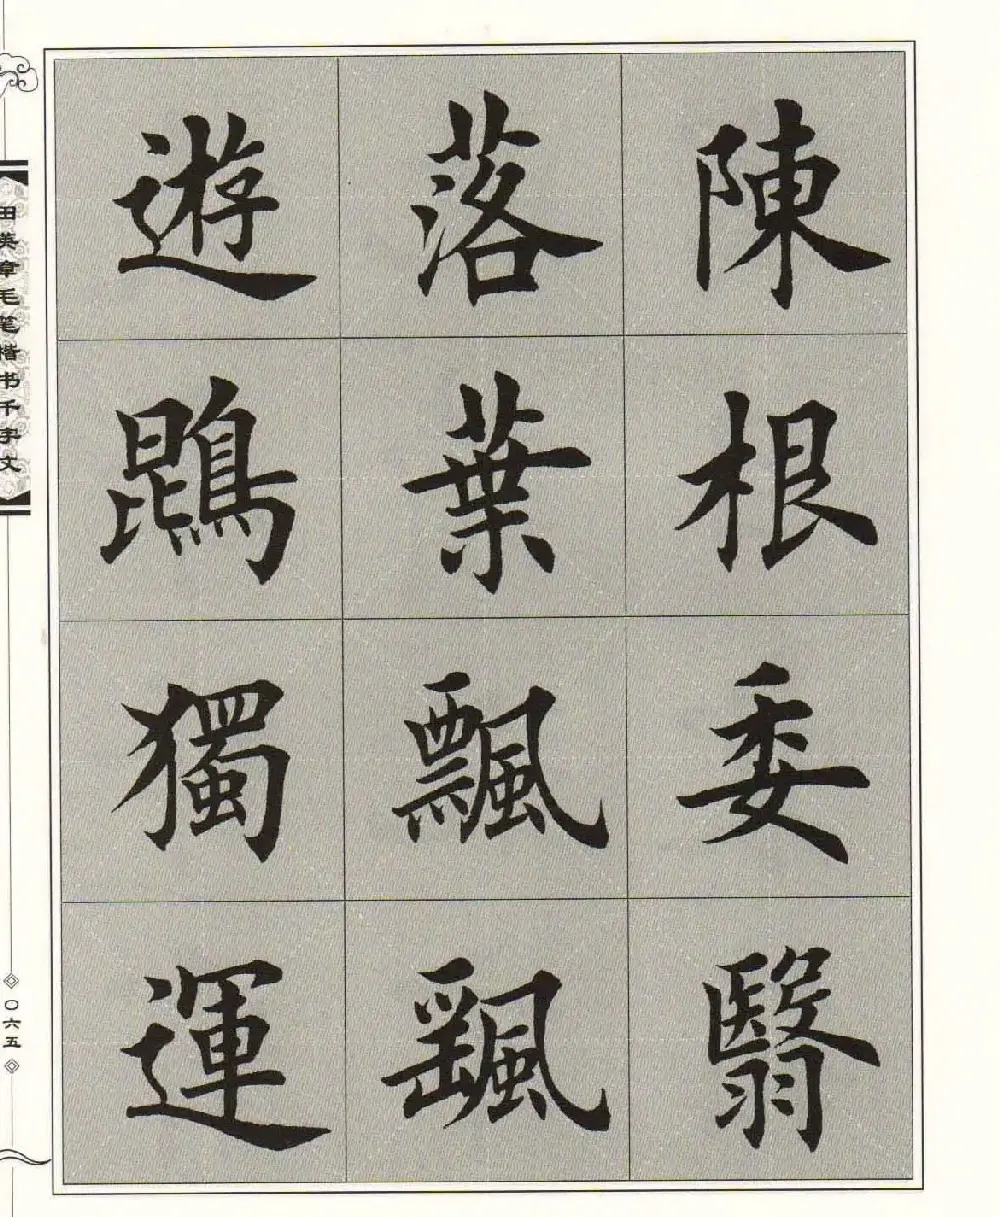 陳根委翳
落葉飄颻
遊鵾獨運
田英章毛笔楷书千字文
〇六五